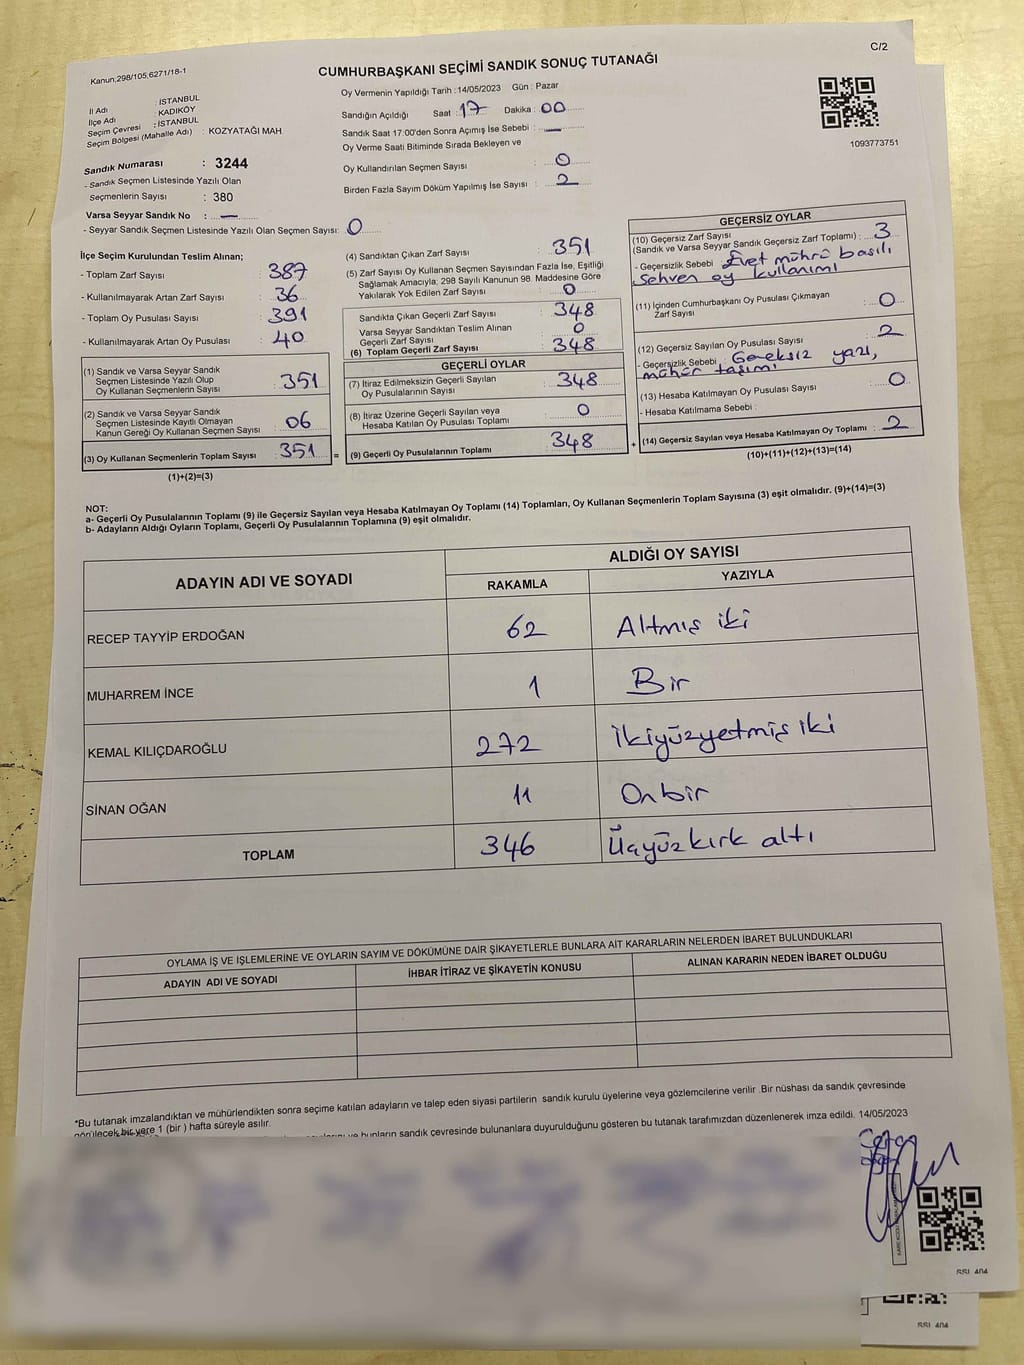 C/2
Kanun,298/105,6271/18-1
CUMHURBAŞKANI SEÇİMİ SANDIK SONUÇ TUTANAĞI
İl Adı : İSTANBUL
İlçe Adı : KADIKÖY
Seçim Çevresi : İSTANBUL
Seçim Bölgesi (Mahalle Adı) : KOZYATAĞI MAH
Sandık Numarası : 3244
- Sandık Seçmen Listesinde Yazılı Olan
Seçmenlerin Sayısı : 380
Varsa Seyyar Sandık No : —
- Seyyar Sandık Seçmen Listesinde Yazılı Olan Seçmen Sayısı: 0
Oy Vermenin Yapıldığı Tarih :14/05/2023 Gün : Pazar
Sandığın Açıldığı Saat : 17 Dakika : 00
Sandık Saat 17:00'den Sonra Açımış İse Sebebi : —
Oy Verme Saati Bitiminde Sırada Bekleyen ve
Oy Kullandırılan Seçmen Sayısı : 0
Birden Fazla Sayım Döküm Yapılmış İse Sayısı : 2
1093773751
İlçe Seçim Kurulundan Teslim Alınan;
- Toplam Zarf Sayısı : 387
- Kullanılmayarak Artan Zarf Sayısı : 36
- Toplam Oy Pusulası Sayısı : 391
- Kullanılmayarak Artan Oy Pusulası : 40
(1) Sandık ve Varsa Seyyar Sandık
Seçmen Listesinde Yazılı Olup
Oy Kullanan Seçmenlerin Sayısı : 351
(2) Sandık ve Varsa Seyyar Sandık
Seçmen Listesinde Kayıtlı Olmayan
Kanun Gereği Oy Kullanan Seçmen Sayısı : 06
(3) Oy Kullanan Seçmenlerin Toplam Sayısı : 351
(1)+(2)=(3)
(4) Sandıktan Çıkan Zarf Sayısı : 351
(5) Zarf Sayısı Oy Kullanan Seçmen Sayısından Fazla İse, Eşitliği
Sağlamak Amacıyla; 298 Sayılı Kanunun 98. Maddesine Göre
Yakılarak Yok Edilen Zarf Sayısı : 0
Sandıkta Çıkan Geçerli Zarf Sayısı : 348
Varsa Seyyar Sandıktan Teslim Alınan
Geçerli Zarf Sayısı : 0
(6) Toplam Geçerli Zarf Sayısı : 348
GEÇERLİ OYLAR
(7) İtiraz Edilmeksizin Geçerli Sayılan
Oy Pusulalarının Sayısı : 348
(8) İtiraz Üzerine Geçerli Sayılan veya
Hesaba Katılan Oy Pusulası Toplamı : 0
= (9) Geçerli Oy Pusulalarının Toplamı : 348
GEÇERSİZ OYLAR
(10) Geçersiz Zarf Sayısı
(Sandık ve Varsa Seyyar Sandık Geçersiz Zarf Toplamı) : 3
- Geçersizlik Sebebi : Evet mührü basılı
Sehven oy kullanımı
(11) İçinden Cumhurbaşkanı Oy Pusulası Çıkmayan
Zarf Sayısı : 0
(12) Geçersiz Sayılan Oy Pusulası Sayısı : 2
- Geçersizlik Sebebi : Gereksiz yazı,
mühür taşımı
(13) Hesaba Katılmayan Oy Pusulası Sayısı : 0
- Hesaba Katılmama Sebebi :
+ (14) Geçersiz Sayılan veya Hesaba Katılmayan Oy Toplamı : 2
(10)+(11)+(12)+(13)=(14)
NOT:
a- Geçerli Oy Pusulalarının Toplamı (9) ile Geçersiz Sayılan veya Hesaba Katılmayan Oy Toplamı (14) Toplamları, Oy Kullanan Seçmenlerin Toplam Sayısına (3) eşit olmalıdır. (9)+(14)=(3)
b- Adayların Aldığı Oyların Toplamı, Geçerli Oy Pusulalarının Toplamına (9) eşit olmalıdır.
ADAYIN ADI VE SOYADI ALDIĞI OY SAYISI
RAKAMLA YAZIYLA
RECEP TAYYİP ERDOĞAN 62 Altmış iki
MUHARREM İNCE 1 Bir
KEMAL KILIÇDAROĞLU 272 İkiyüzyetmiş iki
SİNAN OĞAN 11 Onbir
TOPLAM 346 Üçyüzkırk altı
OYLAMA İŞ VE İŞLEMLERİNE VE OYLARIN SAYIM VE DÖKÜMÜNE DAİR ŞİKAYETLERLE BUNLARA AİT KARARLARIN NELERDEN İBARET BULUNDUKLARI
ADAYIN ADI VE SOYADI İHBAR İTİRAZ VE ŞİKAYETİN KONUSU ALINAN KARARIN NEDEN İBARET OLDUĞU
*Bu tutanak imzalandıktan ve mühürlendikten sonra seçime katılan adayların ve talep eden siyasi partilerin sandık kurulu üyelerine veya gözlemcilerine verilir .Bir nüshası da sandık çevresinde
görülecek bir yere 1 (bir ) hafta süreyle asılır.
ve bunların sandık çevresinde bulunanlara duyurulduğunu gösteren bu tutanak tarafımızdan düzenlenerek imza edildi. 14/05/2023
SSI 404
SSI 404